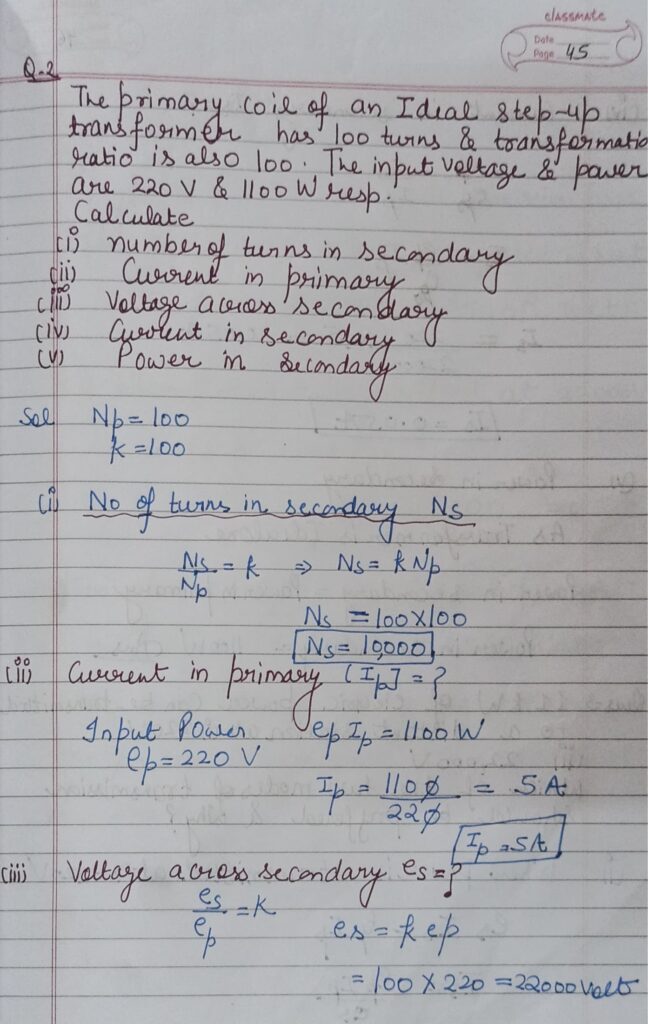 classmate
Date
Page 45
Q-2
The primary coil of an Ideal step-up
transformer has 100 turns & transformatio
ratio is also 100. The input voltage & power
are 220 V & 1100 W resp.
Calculate
(i) number of turns in secondary
(ii) Current in primary
(iii) Voltage across secondary
(iv) Current in secondary
(v) Power in secondary
Sol Np = 100
k = 100
(i) No of turns in secondary Ns
Ns/Np = k ⇒ Ns = k Np
Ns = 100 X 100
Ns = 10,000
(ii) Current in primary [Ip] = ?
Input Power ep Ip = 1100 W
ep = 220 V
Ip = 1100/220 = 5 A
Ip = 5A
(iii) Voltage across secondary es = ?
es/ep = K es = k ep
= 100 X 220 = 22000 volt